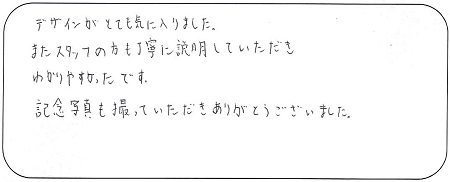 デザインがとても気に入りました。
またスタッフの方も丁寧に説明していただき
わかりやすかったです.
記念写真も撮っていただきありがとうございました。